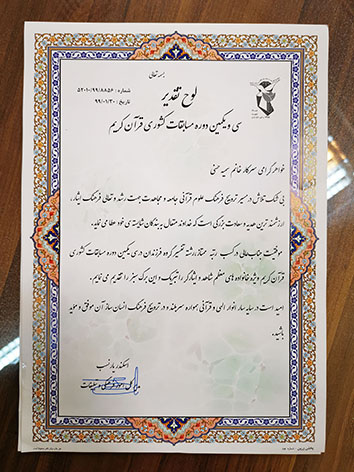 بسمه تعالی
شماره : ۵۲۰۱۰/۹۹/۸۸۵۶
تاریخ : ۹۹/۰۱/۳۰
لوح تقدیر
سی و یکمین دوره مسابقات کشوری قرآن کریم
خواهر گرامی سرکار خانم سیده حسنی
بی شک تلاش در مسیر ترویج فرهنگ علوم قرآنی جامعه و مجاهدت جهت رشد و تعالی فرهنگ ایثار،
ارزشمندترین هدیه و سعادت بزرگی است که خداوند متعال به بندگان شایسته ی خود عطا می نماید.
موفقیت جنابعالی در کسب رتبه ممتاز رشته تفسیر گروه فرزندان در سی و یکمین دوره مسابقات کشوری
قرآن کریم ویژه خانواده های معظم شاهد و ایثارگر را تبریک و این برگ سبز را تقدیم می نمایم.
امید است در سایه سار انوار الهی و قرآنی همواره سربلند و در ترویج فرهنگ انسان ساز آن موفق و موید
باشید.
اسکندر پارنسب